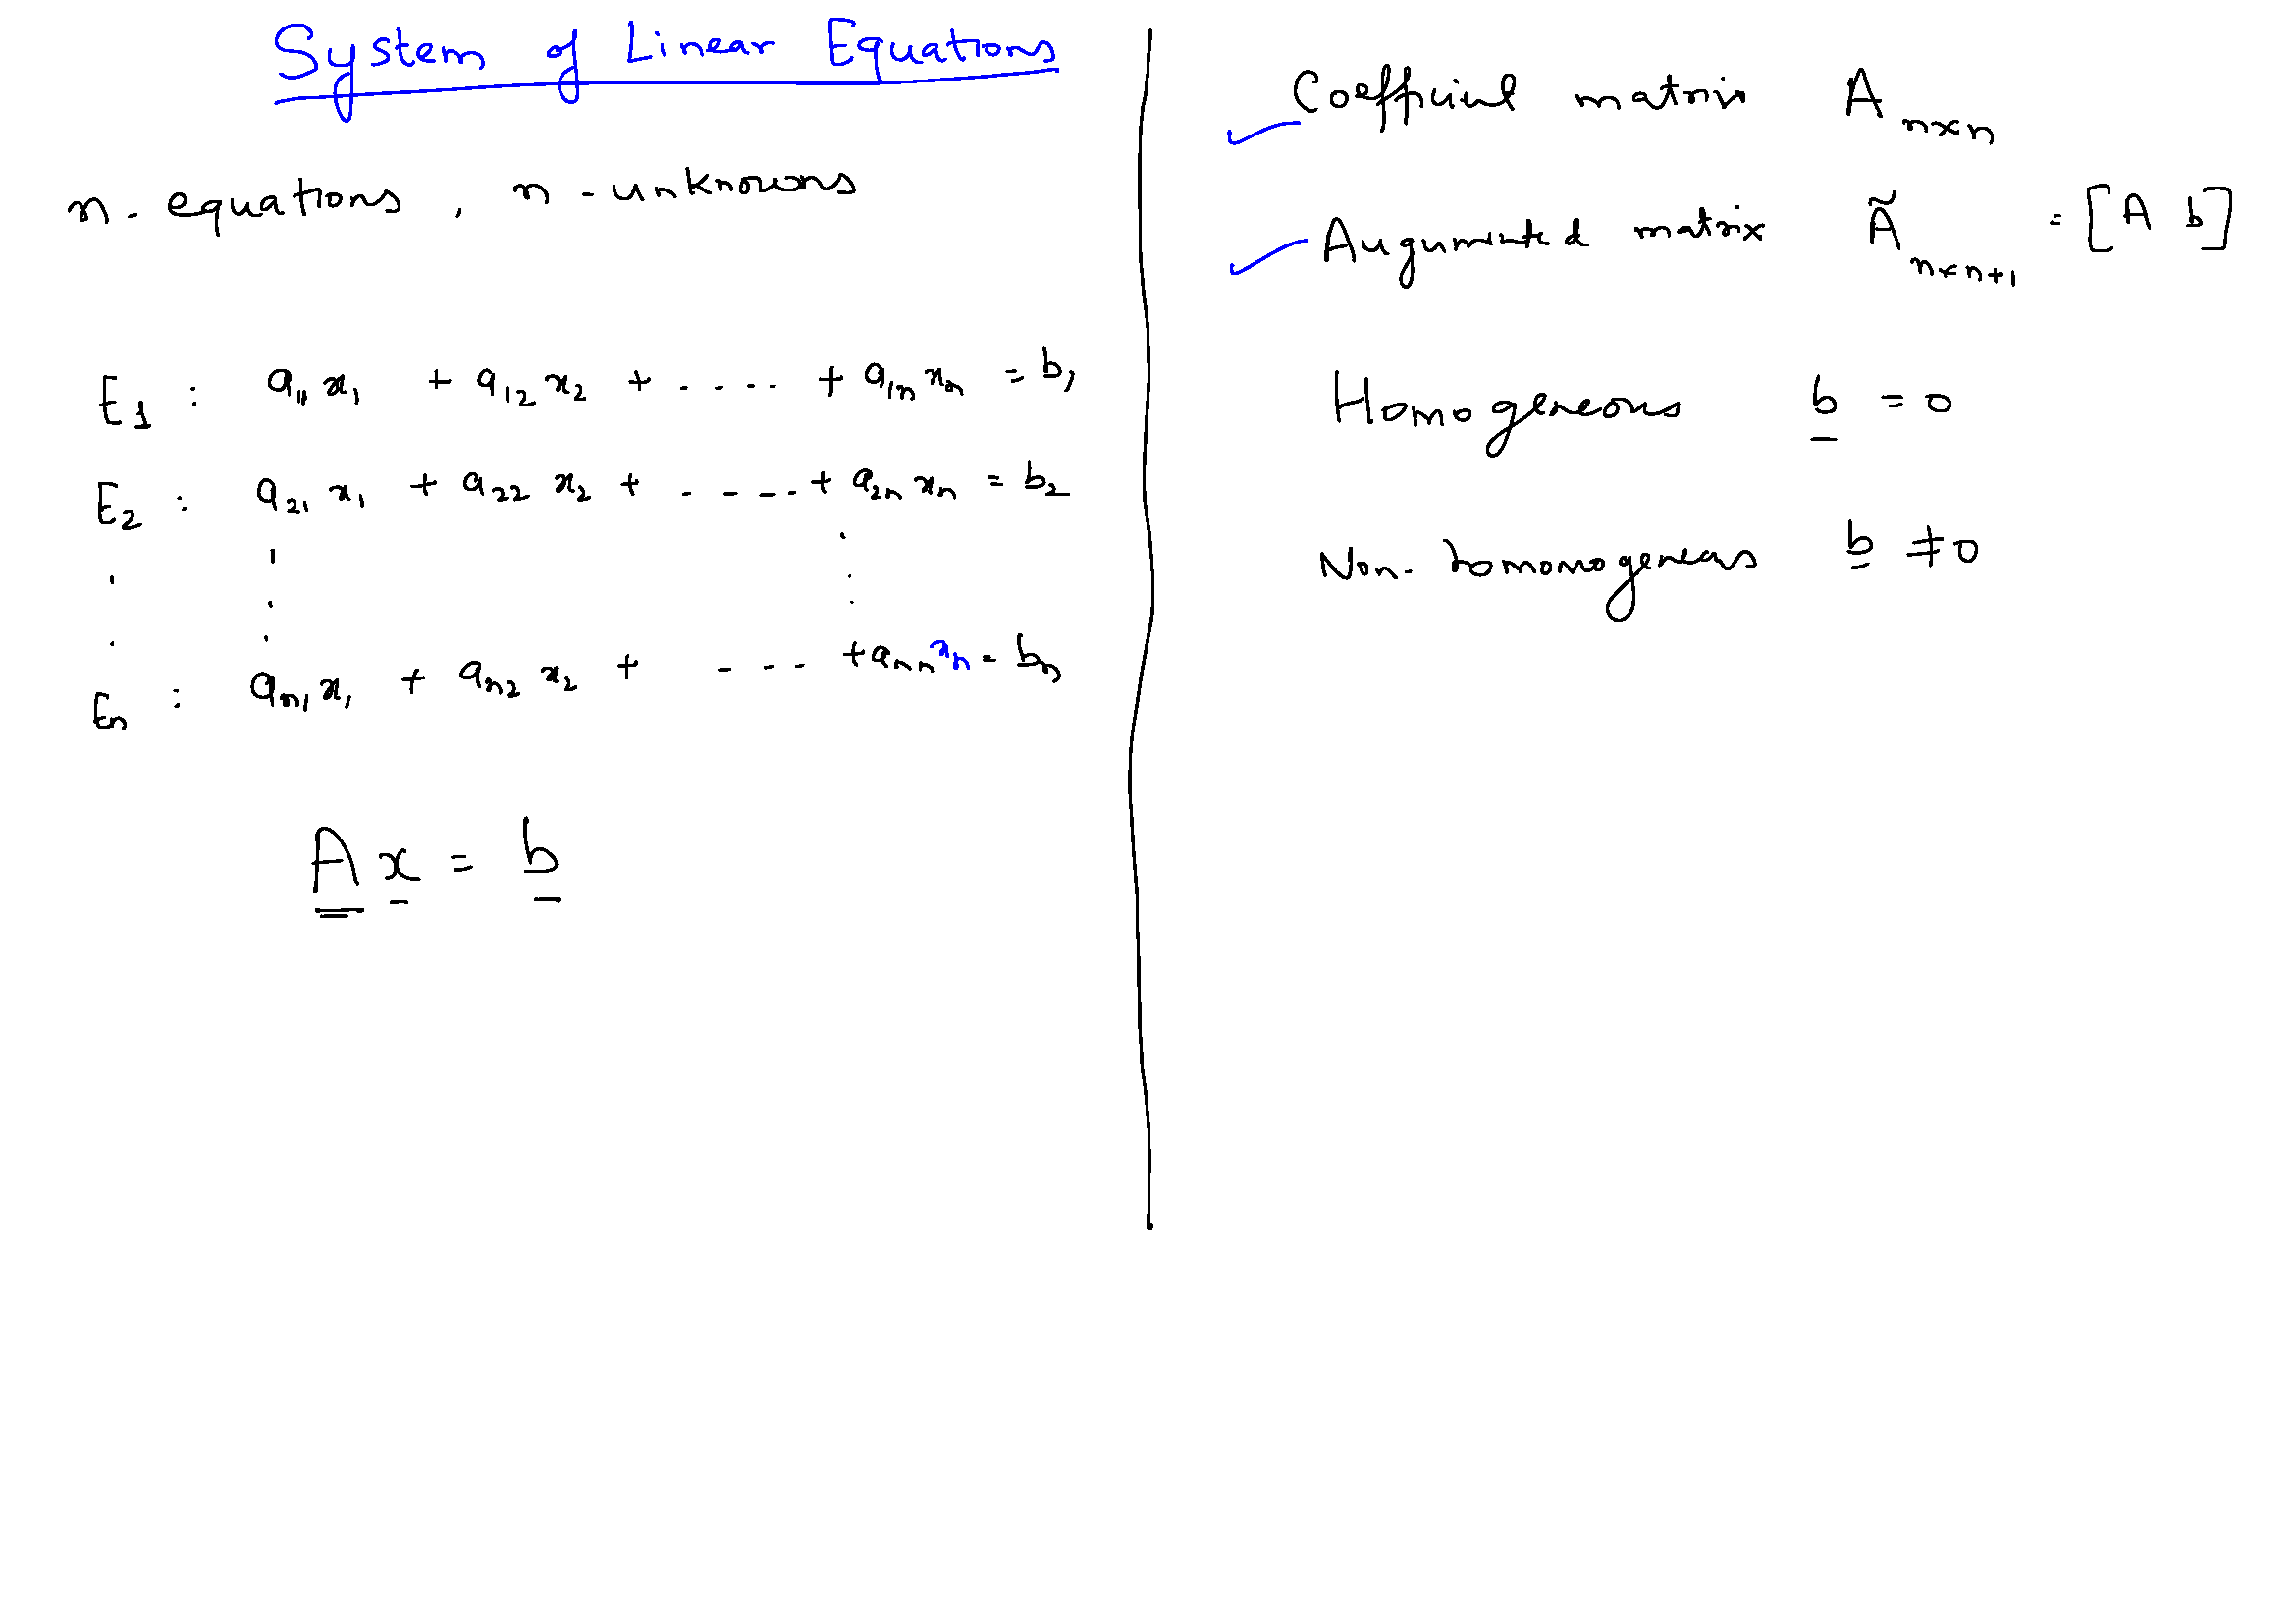 System of Linear Equations
n - equations , n - unknowns
E₁ : a₁₁ x₁ + a₁₂ x₂ + .... + a₁ₙ xₙ = b₁
E₂ : a₂₁ x₁ + a₂₂ x₂ + ..... + a₂ₙ xₙ = b₂
Eₙ : aₙ₁ x₁ + aₙ₂ x₂ + .... + aₙₙ xₙ = bₙ
A x = b
Coefficient matrix A n×n
Augumented matrix Ã n×n+1 = [A b]
Homogeneous b = 0
Non-homomogeneous b ≠ 0